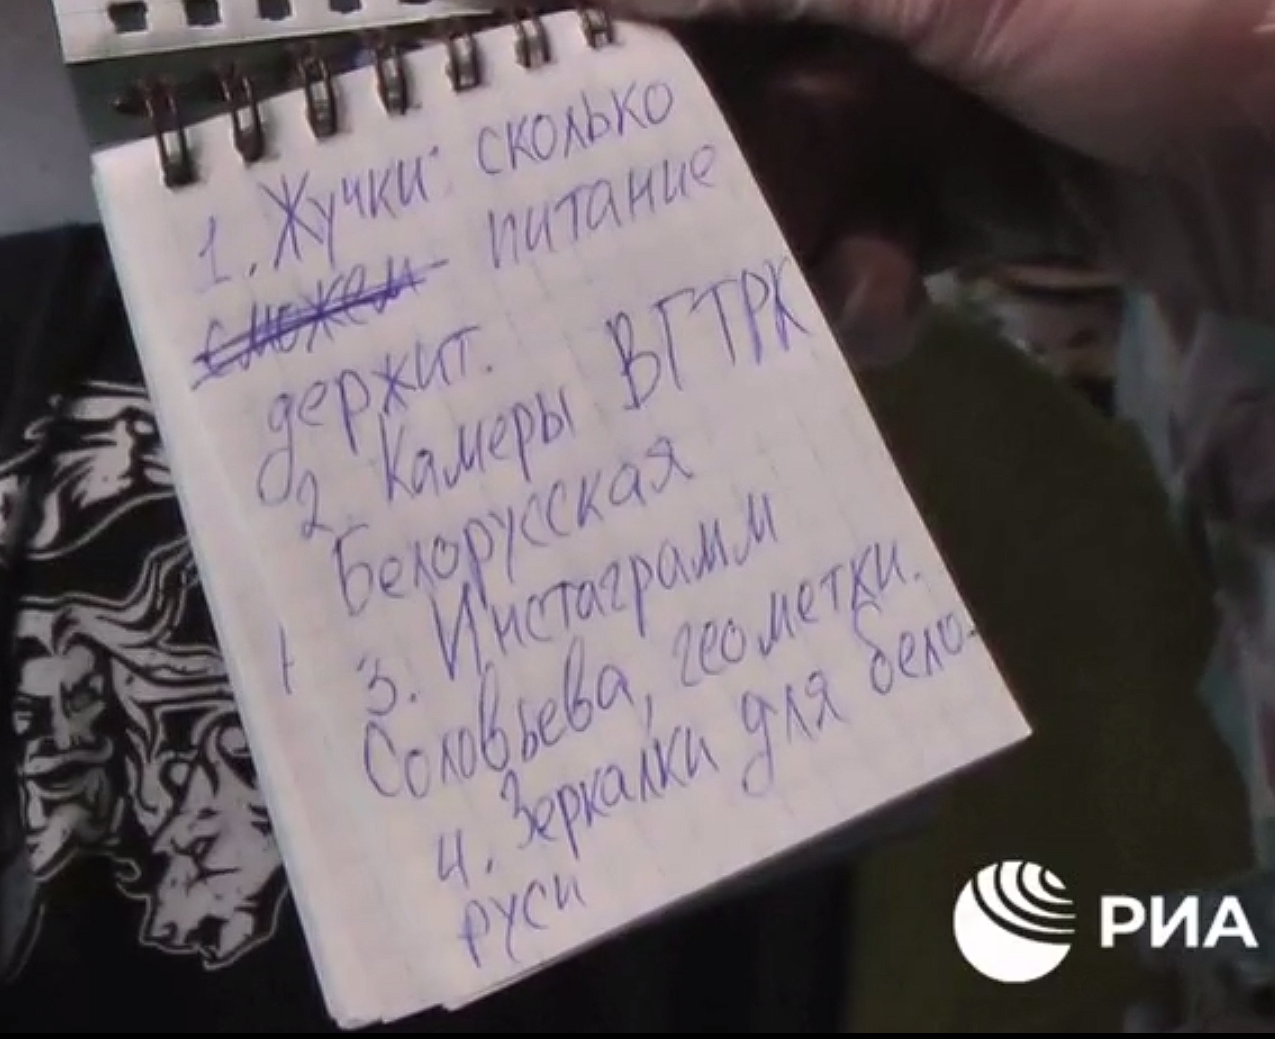 1. Жучки: сколько
сможем питание
держит.
2. Камеры ВГТРК
Белорусская
3. Инстаграмм
Соловьева, геометки.
4. Зеркалки для бело-
руси
РИА